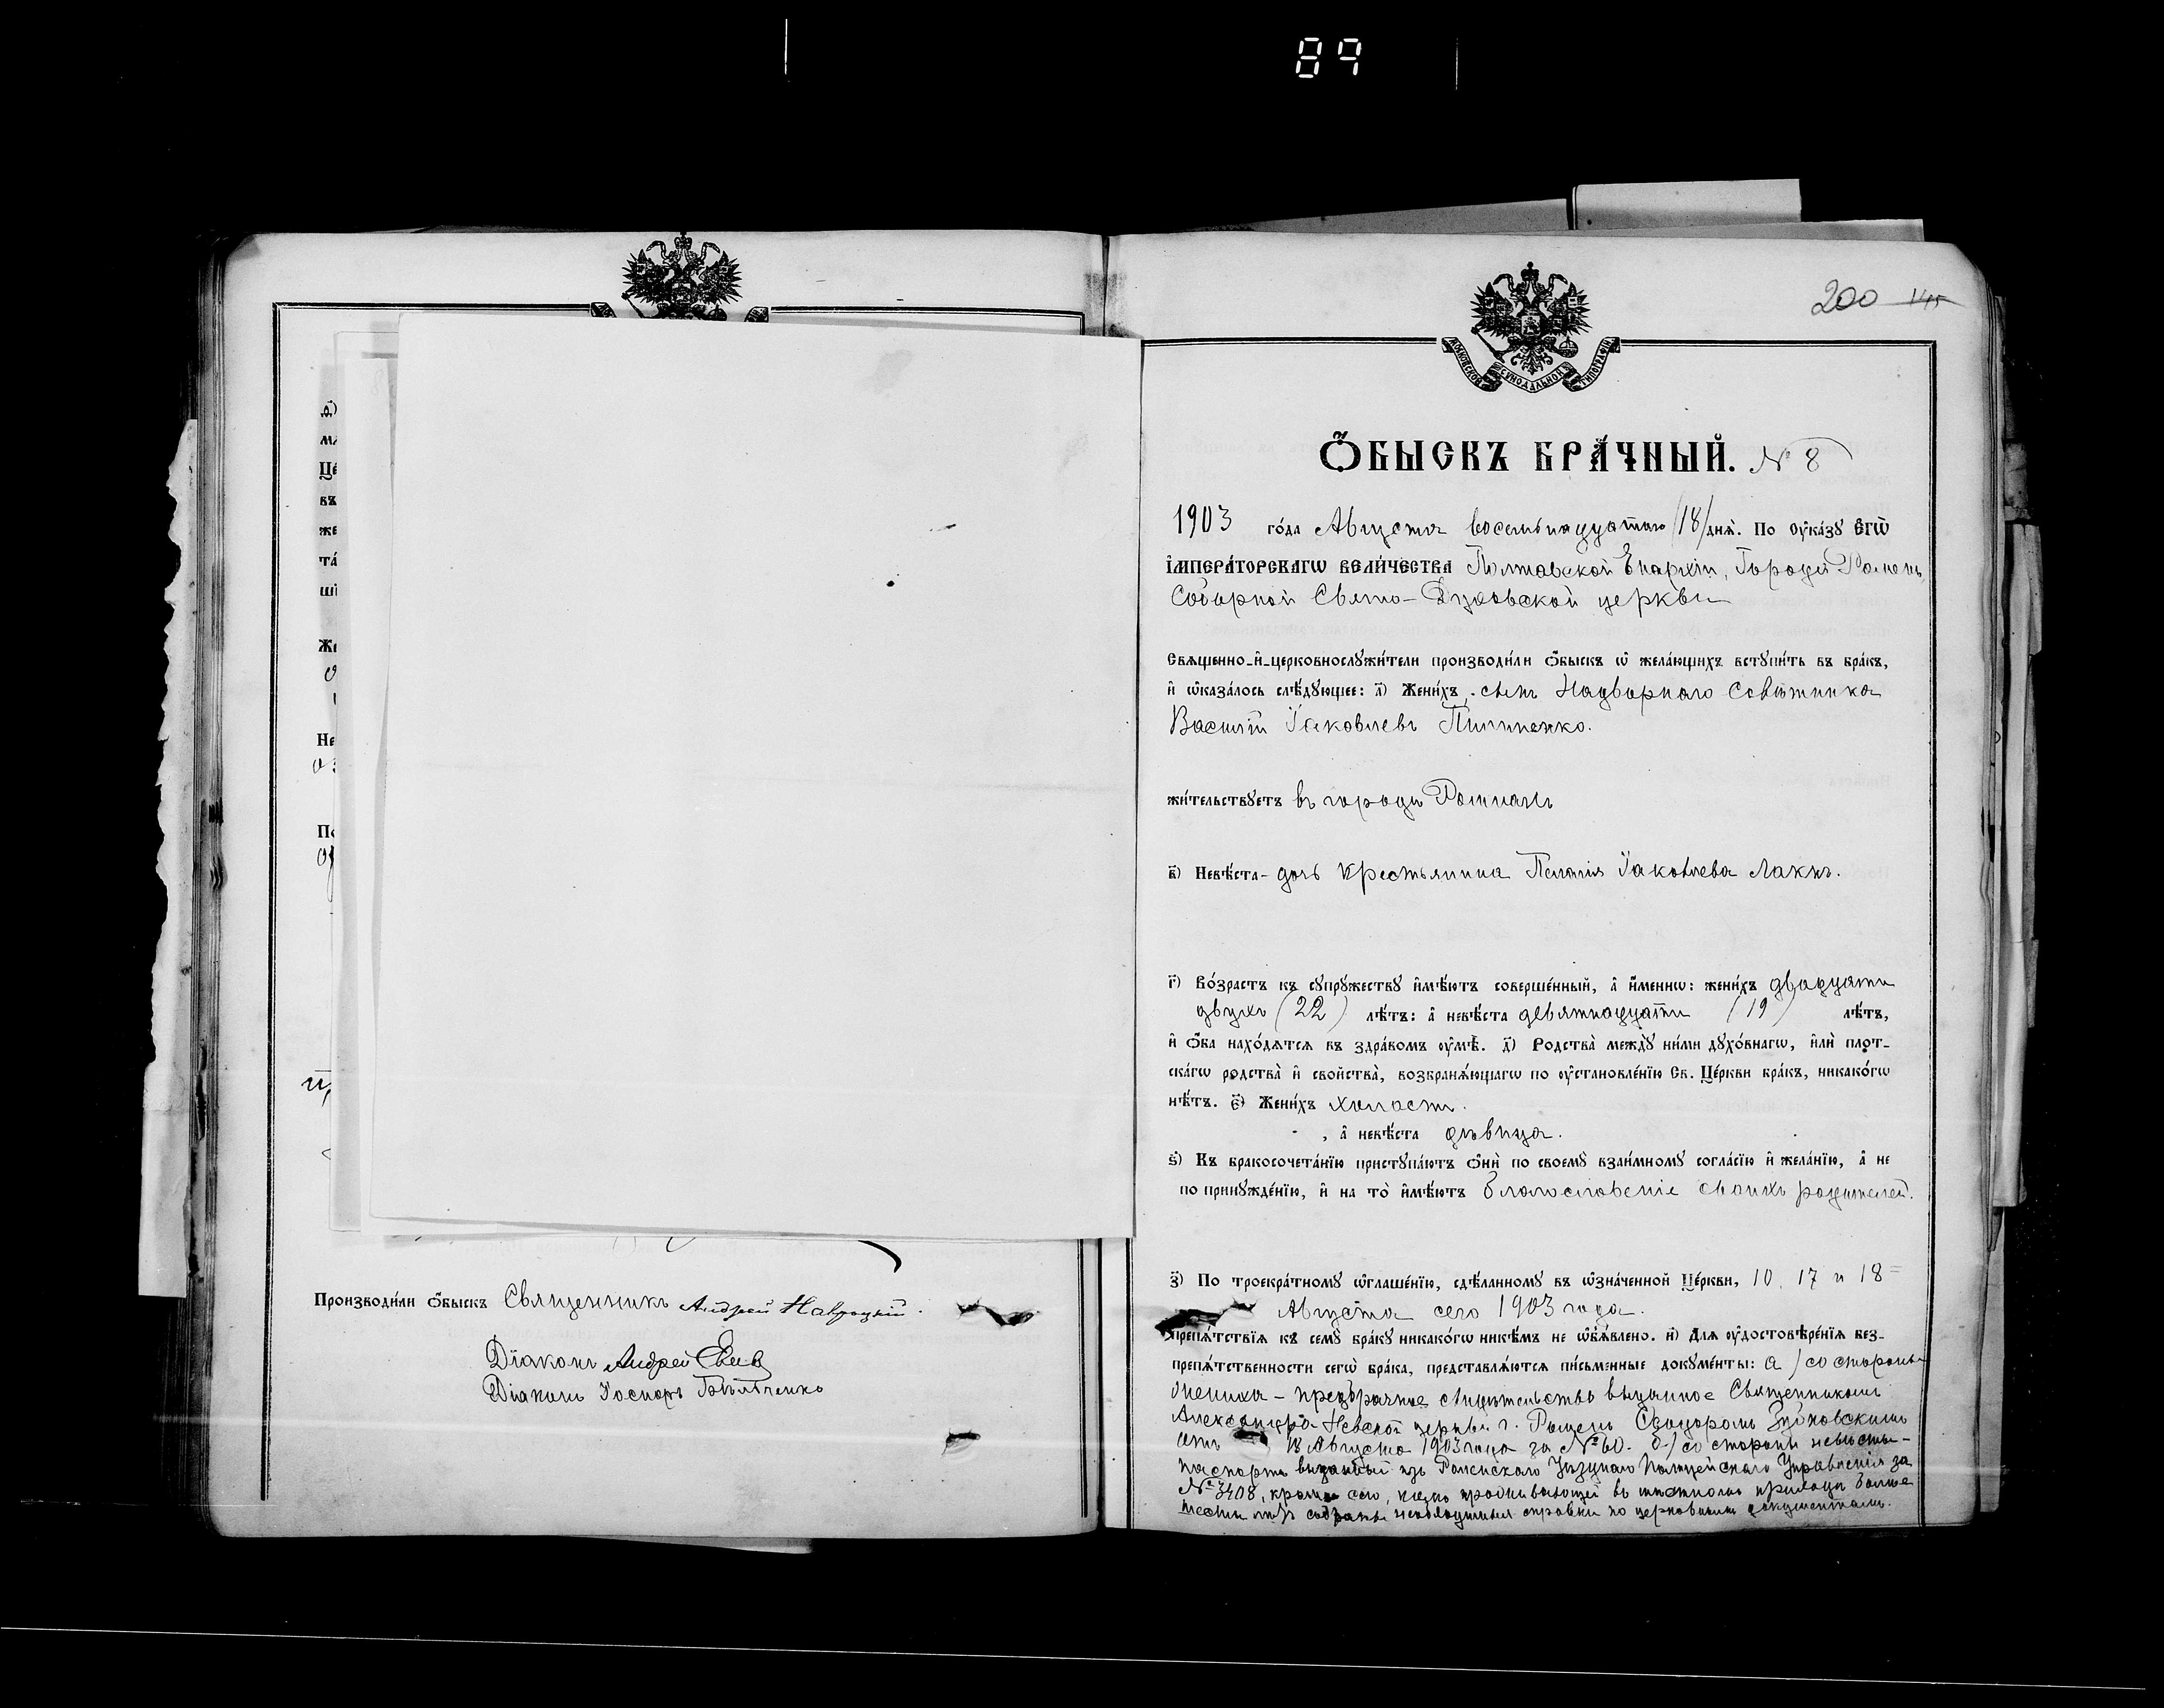 89
200
МОСКОВСКОЙ СѴНОДАЛЬНОЙ ТИПОГРАФІИ
Ѻ҆БЫСКЪ БРА́ЧНЫЙ. № 8
1903 го́да Августа восемьнадцатаго /18/ днѧ̀. По ᲂу҆ка́зꙋ Е҆гѡ̀
І҆МПЕРА́ТОРСКАГѠ ВЕЛИ́ЧЕСТВА Полтавской Епархіи, Города Роменъ
Соборной Свято-Духовской церкви
Свѧще́нно-и҆-церковнослꙋжи́тели производи́ли ѻ҆́быскъ ѡ҆ жела́ющихъ встꙋпи́ть въ бра́къ,
и҆ ѡ҆каза́лось слѣ́дꙋющее: а҃) Жени́хъ, сынъ Надворнаго Совѣтника
Василій Іаковлевъ
жи́тельствꙋетъ въ городѣ Ромнахъ
в҃) Невѣ́ста - дочь крестьянина Іаковлева
г҃) Во́зрастъ къ сꙋпрꙋ́жествꙋ и҆мѣ́ютъ соверше́нный, а҆ и҆́меннѡ: жени́хъ двадцати
двухъ (22) лѣ́тъ: а҆ невѣ́ста девятнадцати (19) лѣ́тъ,
и҆ ѻ҆́ба нахо́дѧтсѧ въ здра́вомъ ᲂу҆мѣ̀. д҃) Родства̀ междꙋ̀ ни́ми дꙋхо́внагѡ, и҆лѝ плот-
ска́гѡ родства̀ и҆ сво́йства, возбранѧ́ющагѡ по ᲂу҆становле́нїю Св. Це́ркви бра́къ, никако́гѡ
нѣ́тъ. е҃) Жени́хъ холостъ.
, а҆ невѣ́ста дѣвица.
ѕ҃) Къ бракосочета́нїю пристꙋпа́ютъ ѻ҆нѝ по своемꙋ̀ взаи́мномꙋ согла́сїю и҆ жела́нїю, а҆ не
по принꙋжде́нїю, и҆ на то̀ и҆мѣ́ютъ благословеніе своихъ родителей.
з҃) По троекра́тномꙋ ѡ҆глаше́нїю, сдѣ́ланномꙋ въ ѡ҆зна́ченной Це́ркви, 10, 17 и 18
Августа сего 1903 года.
препѧ́тствїѧ къ семꙋ̀ бра́кꙋ никако́гѡ никѣ́мъ не ѡ҆б̾ѧ́влено. и҃) Для ᲂу҆достовѣре́нїѧ без-
препѧ́тственности сегѡ̀ бра́ка, представлѧ́ются пи́сьменные докꙋме́нты: а) со стороны
жениха - предбрачное свидѣтельство выданное Священникомъ
Александро-Невской церкви г. Роменъ Ѳеодоромъ
отъ 18 Августа 1903 года за № 60. б) со стороны невѣсты -
паспортъ выданный изъ Роменскаго Уѣзднаго Полицейскаго Управленія за
№ 3408, кромѣ сего, въ приходѣ болѣе
шести собраны необходимыя справки по церковнымъ документамъ.
Производи́ли ѻ҆́быскъ Священникъ Андрей Навроцкій.
Діаконъ Андрей
Діаконъ Іосифъ